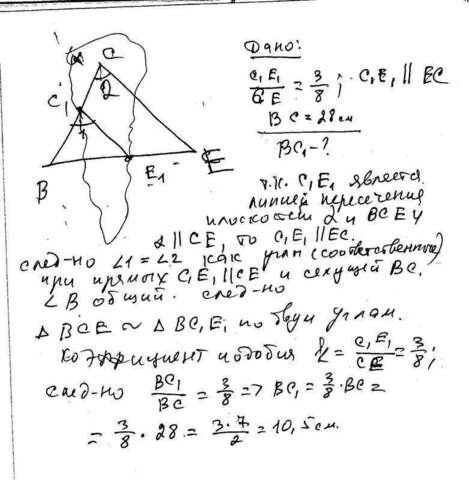 α
C
2
C₁
1
B
E₁
E
Дано:
C₁E₁/CE = 3/8 ; C₁E₁ ∥ EC
BC = 28 см
BC₁ - ?
т.к. C₁E₁ является
линией пересечения
плоскостей α и BCE и
α ∥ CE, то C₁E₁ ∥ EC.
след-но ∠1 = ∠2 как углы (соответственные)
при прямых C₁E₁ ∥ CE и секущей BC.
∠B общий. след-но
△ BCE ~ △ BC₁E₁ по двум углам.
Коэффициент подобия k = C₁E₁/CE = 3/8;
след-но BC₁/BC = 3/8 => BC₁ = 3/8 · BC =
= 3/8 · 28 = 3·7/2 = 10,5 см.